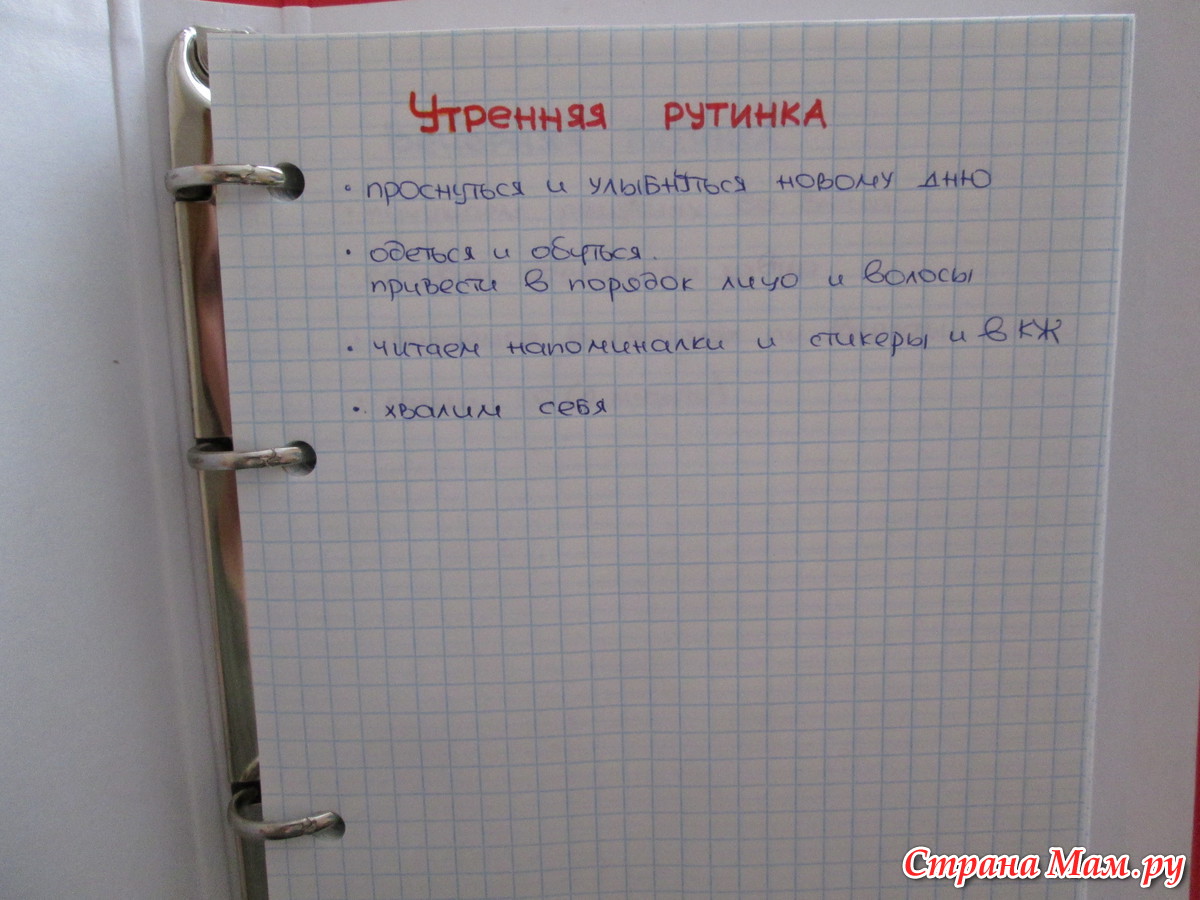 Утренняя рутинка
• проснуться и улыбнуться новому дню
• одеться и обуться.
привести в порядок лицо и волосы
• читаем напоминалки и стикеры и в КЖ
• хвалим себя
Страна Мам.ру